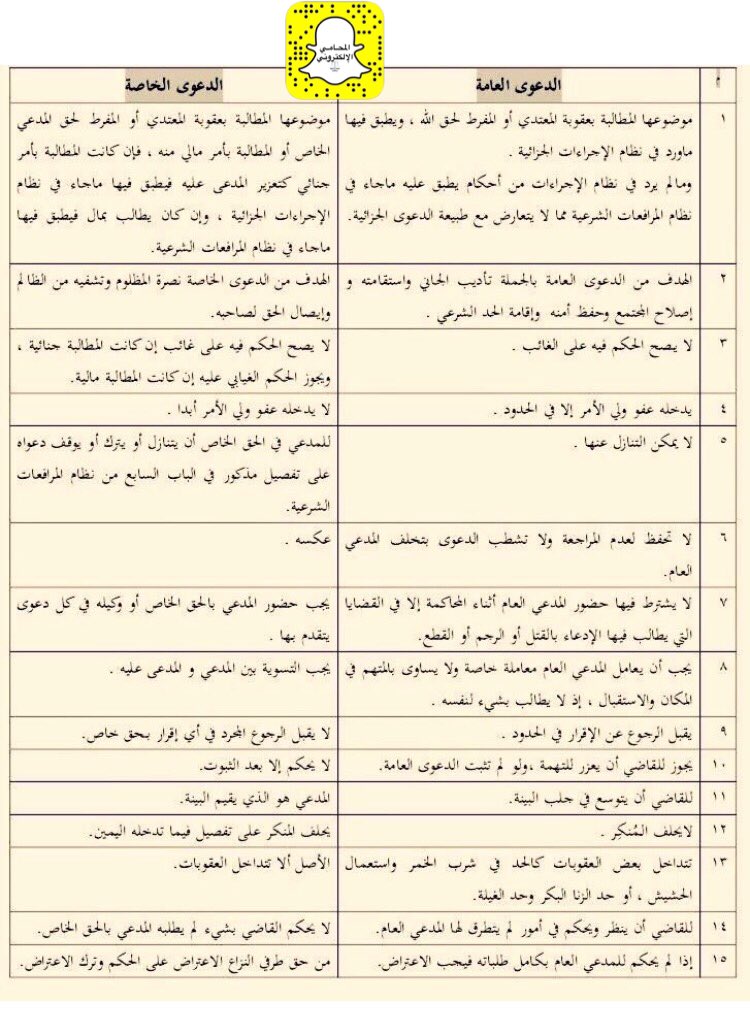 المحامي
الإلكتروني
م
الدعوى العامة
الدعوى الخاصة
١
موضوعها المطالبة بعقوبة المعتدي أو المفرط لحق الله ، ويطبق فيها
ماورد في نظام الإجراءات الجزائية .
ومالم يرد في نظام الإجراءات من أحكام يطبق عليه ماجاء في
نظام المرافعات الشرعية مما لا يتعارض مع طبيعة الدعوى الجزائية.
موضوعها المطالبة بعقوبة المعتدي أو المفرط لحق المدعي
الخاص أو المطالبة بأمر مالي منه ، فإن كانت المطالبة بأمر
جنائي كتعزير المدعى عليه فيطبق فيها ماجاء في نظام
الإجراءات الجزائية ، وإن كان يطالب بمال فيطبق فيها
ماجاء في نظام المرافعات الشرعية.
٢
الهدف من الدعوى العامة بالجملة تأديب الجاني واستقامته و
إصلاح المجتمع وحفظ أمنه وإقامة الحد الشرعي .
الهدف من الدعوى الخاصة نصرة المظلوم وتشفيه من الظالم
وإيصال الحق لصاحبه.
٣
لا يصح الحكم فيه على الغائب .
لا يصح الحكم فيه على غائب إن كانت المطالبة جنائية ،
ويجوز الحكم الغيابي عليه إن كانت المطالبة مالية.
٤
يدخله عفو ولي الأمر إلا في الحدود .
لا يدخله عفو ولي الأمر أبدا .
٥
لا يمكن التنازل عنها .
للمدعي في الحق الخاص أن يتنازل أو يترك أو يوقف دعواه
على تفصيل مذكور في الباب السابع من نظام المرافعات
الشرعية.
٦
لا تحفظ لعدم المراجعة ولا تشطب الدعوى بتخلف المدعي
العام.
عكسه .
٧
لا يشترط فيها حضور المدعي العام أثناء المحاكمة إلا في القضايا
التي يطالب فيها الإدعاء بالقتل أو الرجم أو القطع.
يجب حضور المدعي بالحق الخاص أو وكيله في كل دعوى
يتقدم بها .
٨
يجب أن يعامل المدعي العام معاملة خاصة ولا يساوى بالمتهم في
المكان والاستقبال ، إذ لا يطالب بشيء لنفسه .
يجب التسوية بين المدعي و المدعى عليه .
٩
يقبل الرجوع عن الإقرار في الحدود .
لا يقبل الرجوع المجرد في أي إقرار بحق خاص.
١٠
يجوز للقاضي أن يعزر للتهمة ،ولو لم تثبت الدعوى العامة.
لا يحكم إلا بعد الثبوت.
١١
للقاضي أن يتوسع في جلب البينة.
المدعي هو الذي يقيم البينة.
١٢
لايحلف المُنكِر .
يحلف المنكر على تفصيل فيما تدخله اليمين.
١٣
تتداخل بعض العقوبات كالحد في شرب الخمر واستعمال
الحشيش ، أو حد الزنا البكر وحد الغيلة.
الأصل ألا تتداخل العقوبات.
١٤
للقاضي أن ينظر ويحكم في أمور لم يتطرق لها المدعي العام.
لا يحكم القاضي بشيء لم يطلبه المدعي بالحق الخاص.
١٥
إذا لم يحكم للمدعي العام بكامل طلباته فيجب الاعتراض.
من حق طرفي النزاع الاعتراض على الحكم وترك الاعتراض.